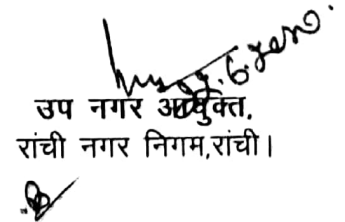 उप नगर आयुक्त,
रांची नगर निगम,रांची।